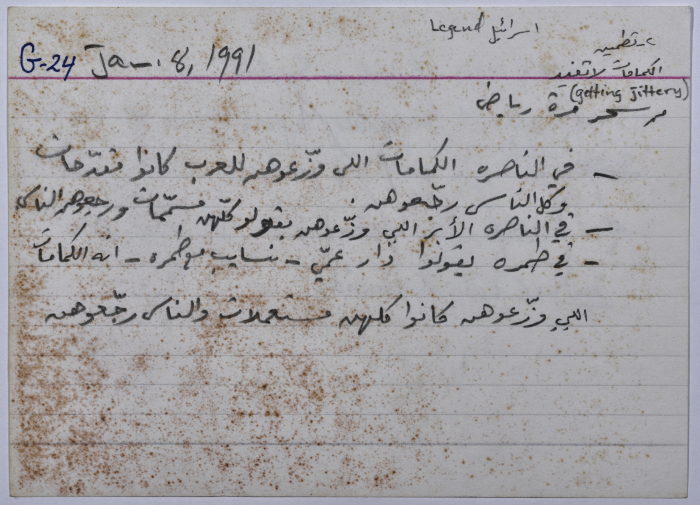 Legend اسرائيل
G-24 Jan. 8, 1991
٢- تطمين
الكمامات لا تفيد
(getting Jittery)
سحر مرة رياض
- في الناصره الكمامات اللي وزّعوهن للعرب كانوا مقدّحات
وكل الناس رجّعوهن.
- في الناصره الأبر اللي وزّعوهن بقولو كلّهن مسمّمات ورجعوهن الناس
- في طمره بقولوا دار عمّي - نسايب مع طمره - انه الكمامات
اللي وزّعوهن كانوا كلهن مستعملات والناس رجّعوهن